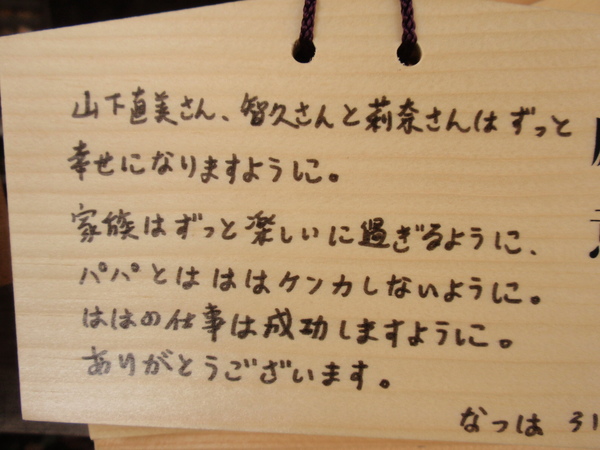 山下直美さん、智久さんと莉奈さんはずっと
幸せになりますように。
家族はずっと楽しいに過ぎるように、
パパとははケンカしないように。
ははの仕事は成功しますように。
ありがとうございます。
なつは 31